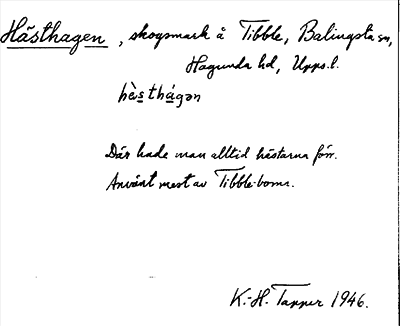 Hästhagen, skogsmark å Tibble, Balingsta sn,
Hagunda hd, Upps.l.
hὲsthágən
Där hade man alltid hästarna förr.
Använt mest av Tibble-borna.
K.-H. Tapper 1946.